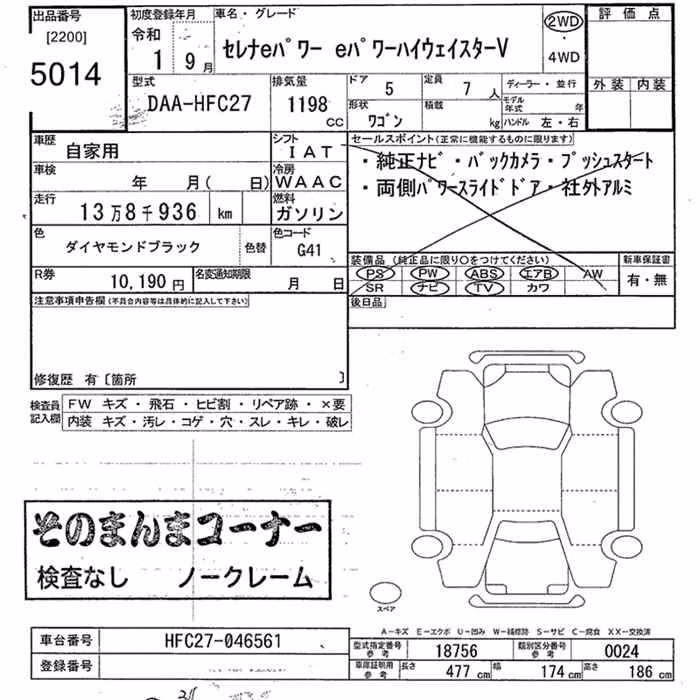 出品番号 初度登録年月 車名・グレード 評価点
[2200] 令和 2WD
5014 1 9月 セレナeパワー eパワーハイウェイスターV ・
4WD
型式 排気量 ドア 5 定員 7人 ディーラー・並行 外装 内装
DAA-HFC27 1198cc 形状 ワゴン 積載 kg モデル年式 年
ハンドル 左・右
車歴 自家用 シフト IAT セールスポイント(正常に機能するものに限ります)
車検 年 月( 日) 冷房 WAAC ・純正ナビ・バックカメラ・プッシュスタート
走行 13万8千936 km 燃料 ガソリン ・両側パワースライドドア・社外アルミ
色 ダイヤモンドブラック 色替 色コード G41
装備品(純正品に限り○をつけてください) 新車保証書
R券 10,190円 名変通知期限 月 日 PS PW ABS エアB AW 有・無
SR ナビ TV カワ
注意事項申告欄(不具合内容等は具体的に記入して下さい) 後日品
修復歴 有〔箇所 〕
検査員記入欄 FW キズ・飛石・ヒビ割・リペア跡・×要
内装 キズ・汚レ・コゲ・穴・スレ・キレ・破レ
そのまんまコーナー
検査なし ノークレーム
スペア
A-キズ E-エクボ U-凹み W-補修跡 S-サビ C-腐食 XX-交換済
車台番号 HFC27-046561 型式指定番号参考 18756 類別区分番号参考 0024
登録番号 車庫証明用参考 長さ 477 cm 幅 174 cm 高さ 186 cm